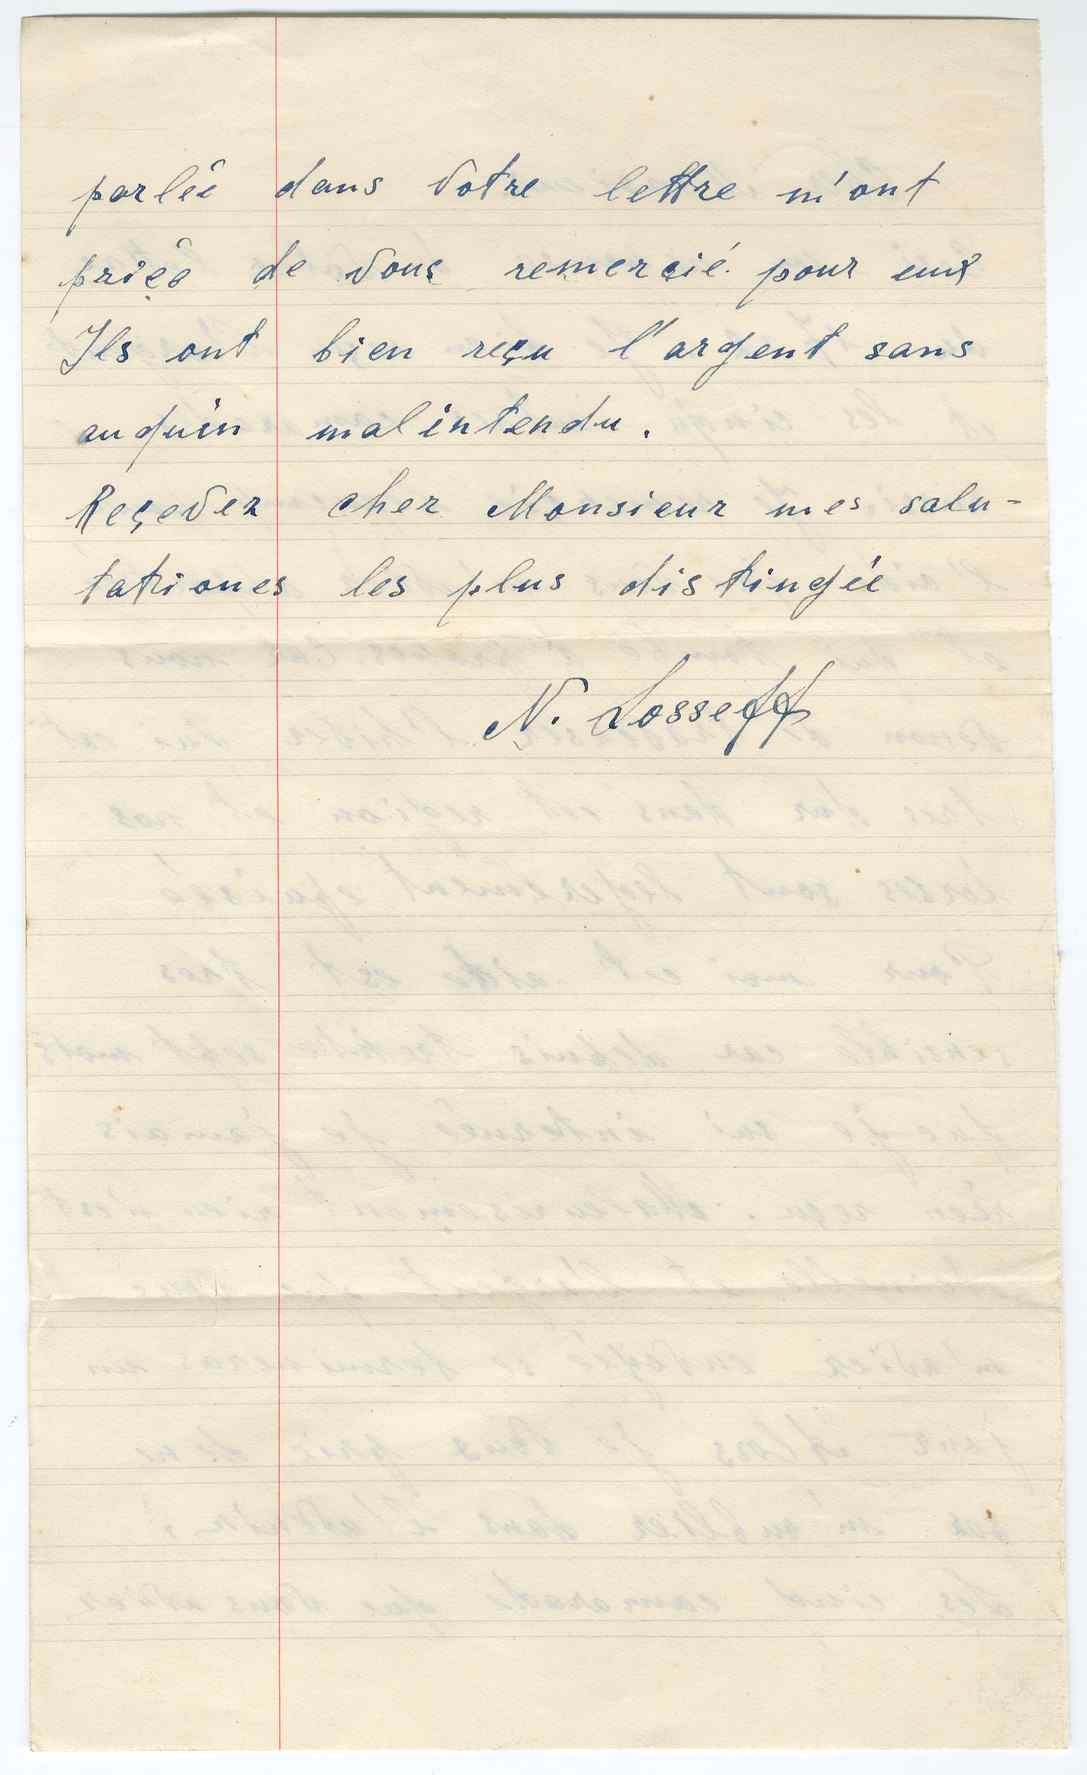 parlée dans Votre lettre m'ont
priée de Vous remercié pour eux
Ils ont bien reçu l'argent sans
auquin malintendu.
Reçevez cher Monsieur mes salu-
tationes les plus distingée
N. Losseff